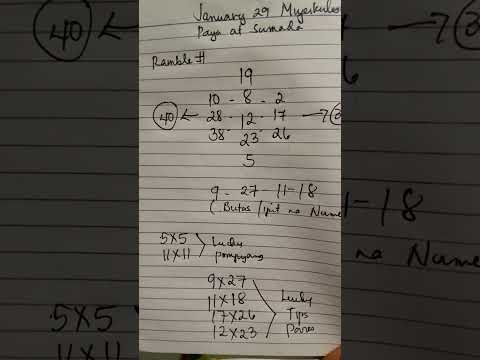 January 29 Miyerkules
Paya at Sumada
Ramble #
19
10 - 8 - 2
40 ← 28 - 12 - 17 →
38 - 23 - 26
5
9 - 27 - 11 - 18
(Butas / ipit na Nume
5x5
11x11
Lucky pompyang
9x27
11x18
17x26
12x23
Lucky
Tips
Pares